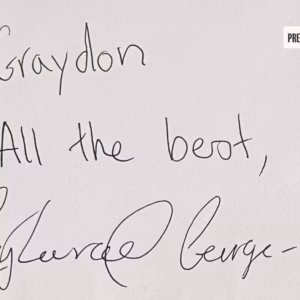 PRE
Graydon
All the best,
George-